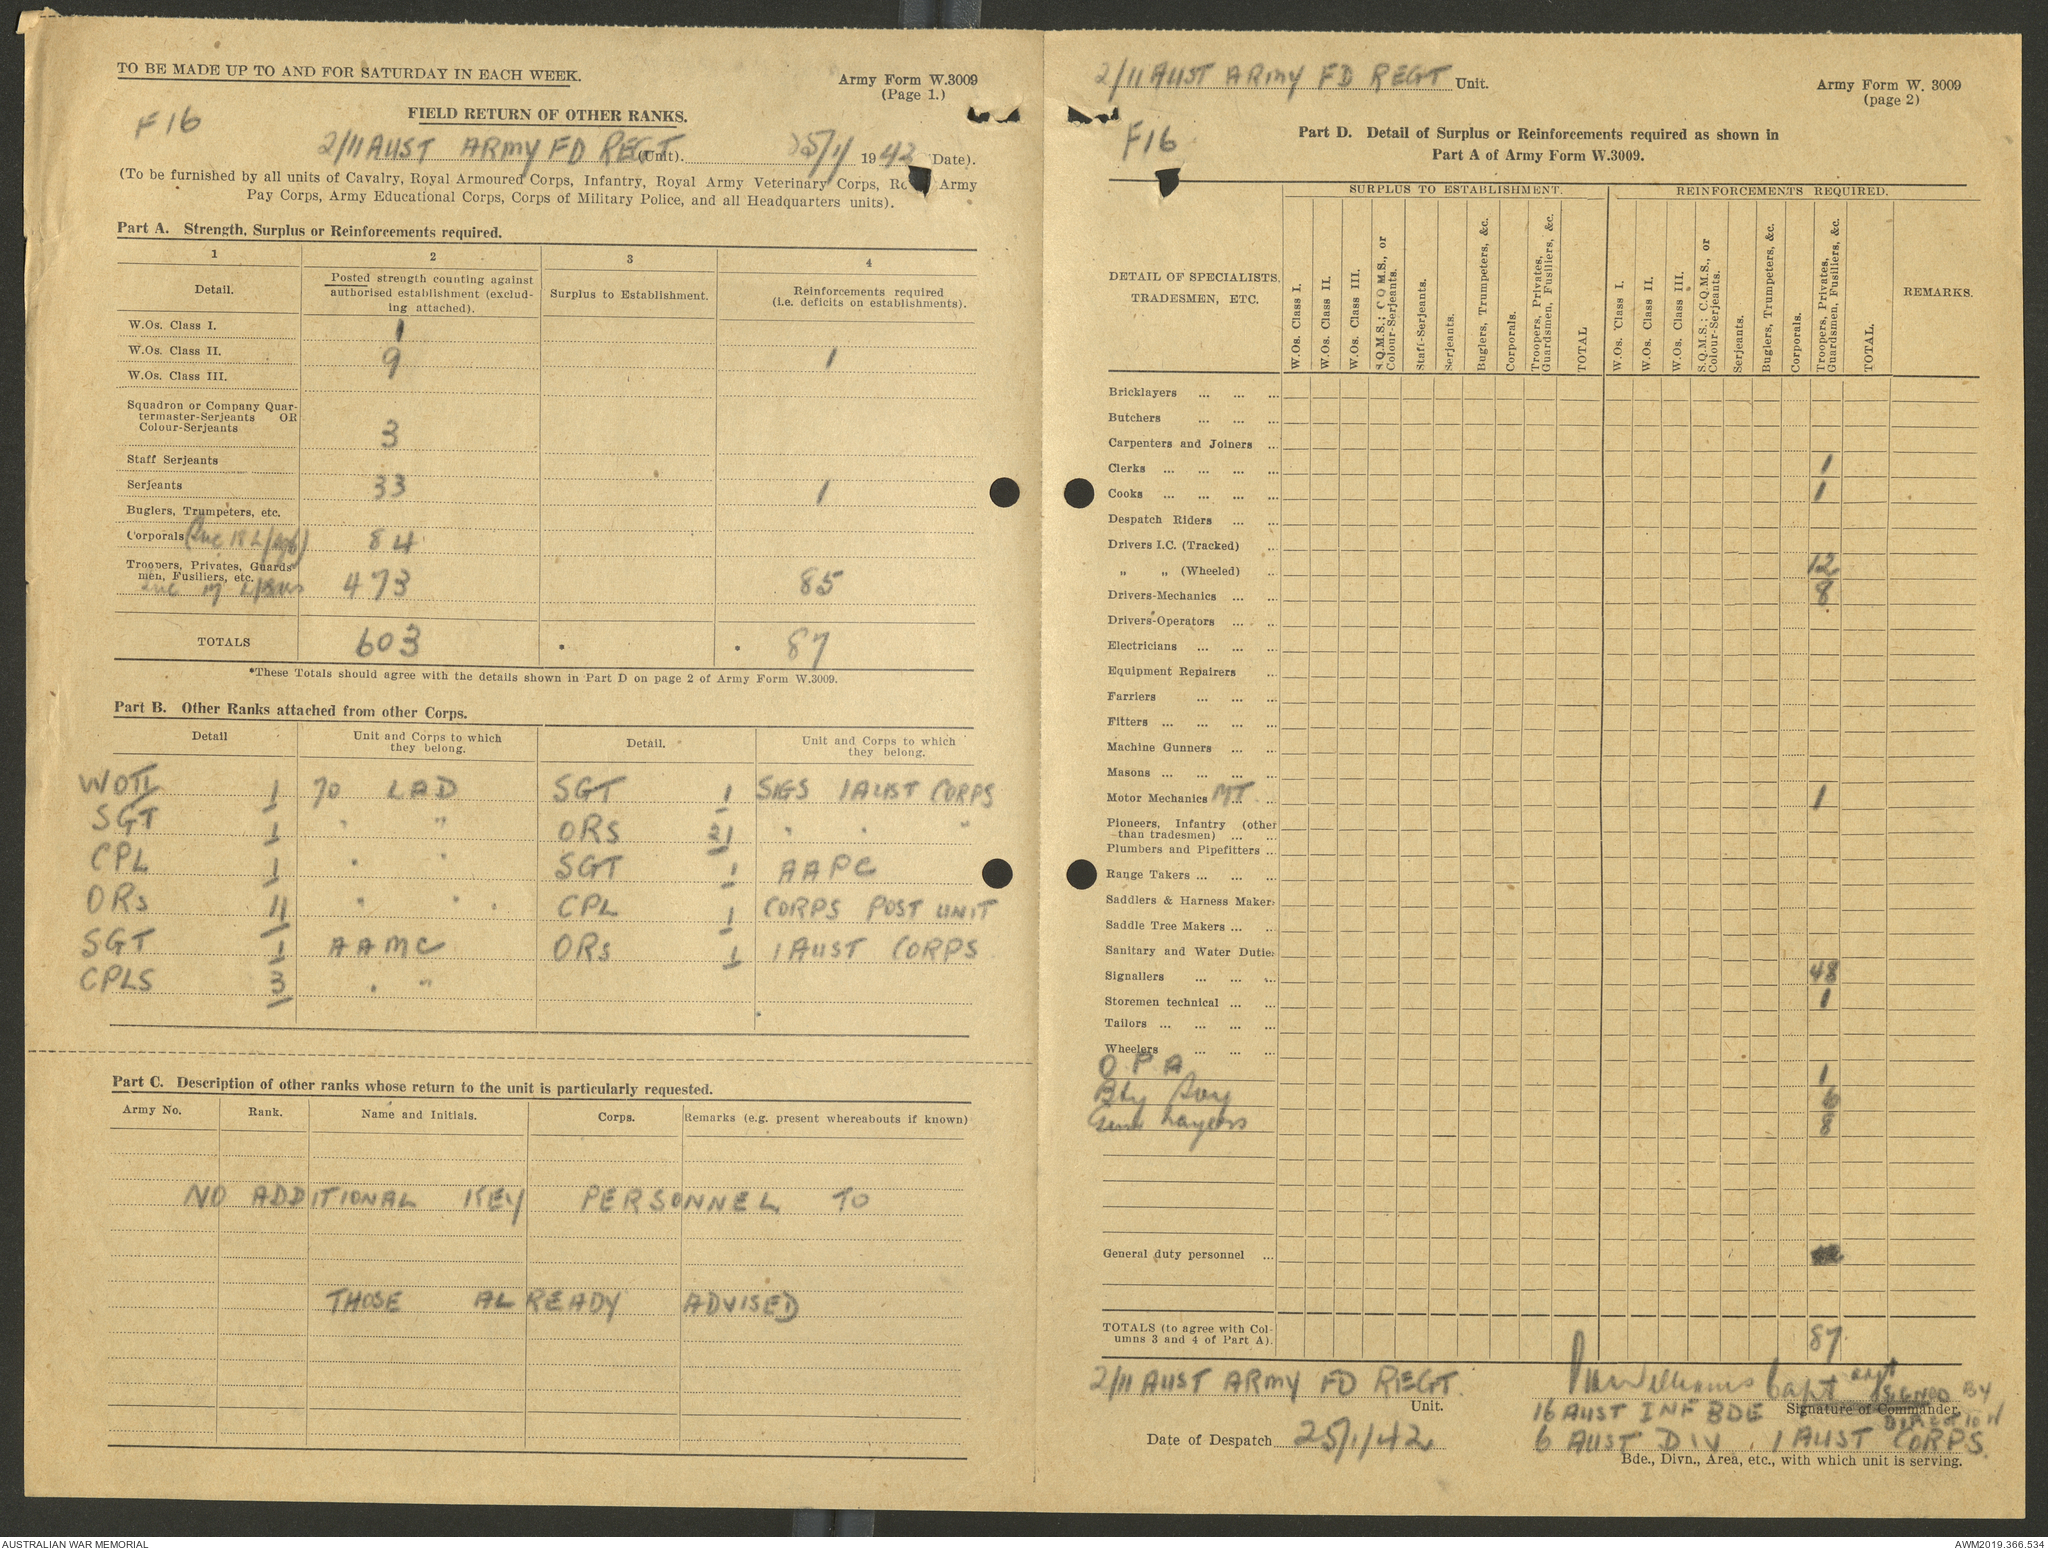 TO BE MADE UP TO AND FOR SATURDAY IN EACH WEEK.
Army Form W.3009
(Page 1.)
F16
FIELD RETURN OF OTHER RANKS.
2/11 AUST ARMY FD REGT (Unit). 25/1/ 1942 (Date).
(To be furnished by all units of Cavalry, Royal Armoured Corps, Infantry, Royal Army Veterinary Corps, Army
Pay Corps, Army Educational Corps, Corps of Military Police, and all Headquarters units).
Part A. Strength, Surplus or Reinforcements required.
1 2 3 4
Detail.
Posted strength counting against
authorised establishment (exclud-
ing attached).
Surplus to Establishment.
Reinforcements required
(i.e. deficits on establishments).
W.Os. Class I. 1
W.Os. Class II. 9 1
W.Os. Class III.
Squadron or Company Quar-
termaster-Serjeants OR
Colour-Serjeants 3
Staff Serjeants
Serjeants 33 1
Buglers, Trumpeters, etc.
Corporals (Inc 18 L/Sgts) 84
Troopers, Privates, Guards-
men, Fusiliers, etc. 473 85
TOTALS 603 87
*These Totals should agree with the details shown in Part D on page 2 of Army Form W.3009.
Part B. Other Ranks attached from other Corps.
Detail
Unit and Corps to which
they belong.
Detail.
Unit and Corps to which
they belong.
WOII 1 70 LAD SGT 1 SIGS 1 AUST CORPS
SGT 1 " " ORS 31 " " "
CPL 1 " " SGT 1 AAPC
ORS 11 " " CPL 1 CORPS POST UNIT
SGT 1 AAMC ORS 1 1 AUST CORPS
CPLS 3 " "
Part C. Description of other ranks whose return to the unit is particularly requested.
Army No. Rank. Name and Initials. Corps. Remarks (e.g. present whereabouts if known)
NO ADDITIONAL KEY PERSONNEL TO
THOSE ALREADY ADVISED
2/11 AUST ARMY FD REGT Unit.
Army Form W. 3009
(page 2)
F16
Part D. Detail of Surplus or Reinforcements required as shown in
Part A of Army Form W.3009.
SURPLUS TO ESTABLISHMENT. REINFORCEMENTS REQUIRED.
DETAIL OF SPECIALISTS,
TRADESMEN, ETC.
W.Os. Class I.
W.Os. Class II.
W.Os. Class III.
S.Q.M.S.; C.Q.M.S., or
Colour-Serjeants.
Staff-Serjeants.
Serjeants.
Buglers, Trumpeters, &c.
Corporals.
Troopers, Privates,
Guardsmen, Fusiliers, &c.
TOTAL
W.Os. Class I.
W.Os. Class II.
W.Os. Class III.
S.Q.M.S.; C.Q.M.S., or
Colour-Serjeants.
Serjeants.
Buglers, Trumpeters, &c.
Corporals.
Troopers, Privates,
Guardsmen, Fusiliers, &c.
TOTAL.
REMARKS.
Bricklayers ... ... ...
Butchers ... ... ...
Carpenters and Joiners ...
Clerks ... ... ... ... 1
Cooks ... ... ... ... 1
Despatch Riders ... ...
Drivers I.C. (Tracked) ...
" " (Wheeled) ... 12
Drivers-Mechanics ... ... 8
Drivers-Operators ... ...
Electricians ... ... ...
Equipment Repairers ...
Farriers ... ... ...
Fitters ... ... ... ...
Machine Gunners ... ...
Masons ... ... ... ...
Motor Mechanics MT ... 1
Pioneers, Infantry (other
than tradesmen) ... ...
Plumbers and Pipefitters ...
Range Takers ... ... ...
Saddlers & Harness Makers
Saddle Tree Makers ... ...
Sanitary and Water Duties
Signallers ... ... ... 48
Storemen technical ... ... 1
Tailors ... ... ... ...
Wheelers ... ... ...
O P A 1
Bty Svy 6
Gun Layers 8
General duty personnel ...
TOTALS (to agree with Col-
umns 3 and 4 of Part A). 87
2/11 AUST ARMY FD REGT.
Unit.
Williams Capt
SIGNED BY
DIRECTION
Signature of Commander.
16 AUST INF BDE
Date of Despatch 25/1/42
6 AUST DIV, 1 AUST CORPS.
Bde., Divn., Area, etc., with which unit is serving.
AUSTRALIAN WAR MEMORIAL
AWM2019.366.534